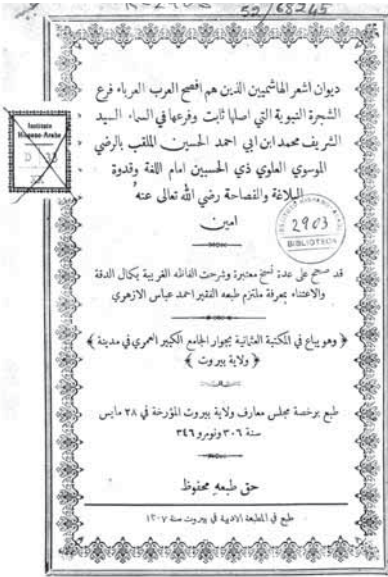 52/68245
ديوان اشعر الهاشميين الذين هم افصح العرب العرباء فرع
الشجرة النبوية التي اصلها ثابت وفرعها في السماء السيد
الشريف محمد ابن ابي احمد الحسين الملقب بالرضي
الموسوي العلوي ذي الحسبين امام اللغة وقدوة
البلاغة والفصاحة رضي الله تعالى عنه
امين
Instituto
Hispano-Arabe
2903
BIBLIOTECA
قد صحح على عدة نسخ معتبرة وشرحت الفاظه الغريبة بكمال الدقة
والاعتناء بمعرفة ملتزم طبعه الفقير احمد عباس الازهري
﴿ وهو يباع في المكتبة العثمانية بجوار الجامع الكبير العمري في مدينة ﴾
﴿ ولاية بيروت ﴾
طبع برخصة مجلس معارف ولاية بيروت المؤرخة في ٢٨ مايس
سنة ٣٠٦ ونومرو ٣٤٦
حق طبعه محفوظ
طبع في المطبعة الادبية في بيروت سنة ١٣٠٧